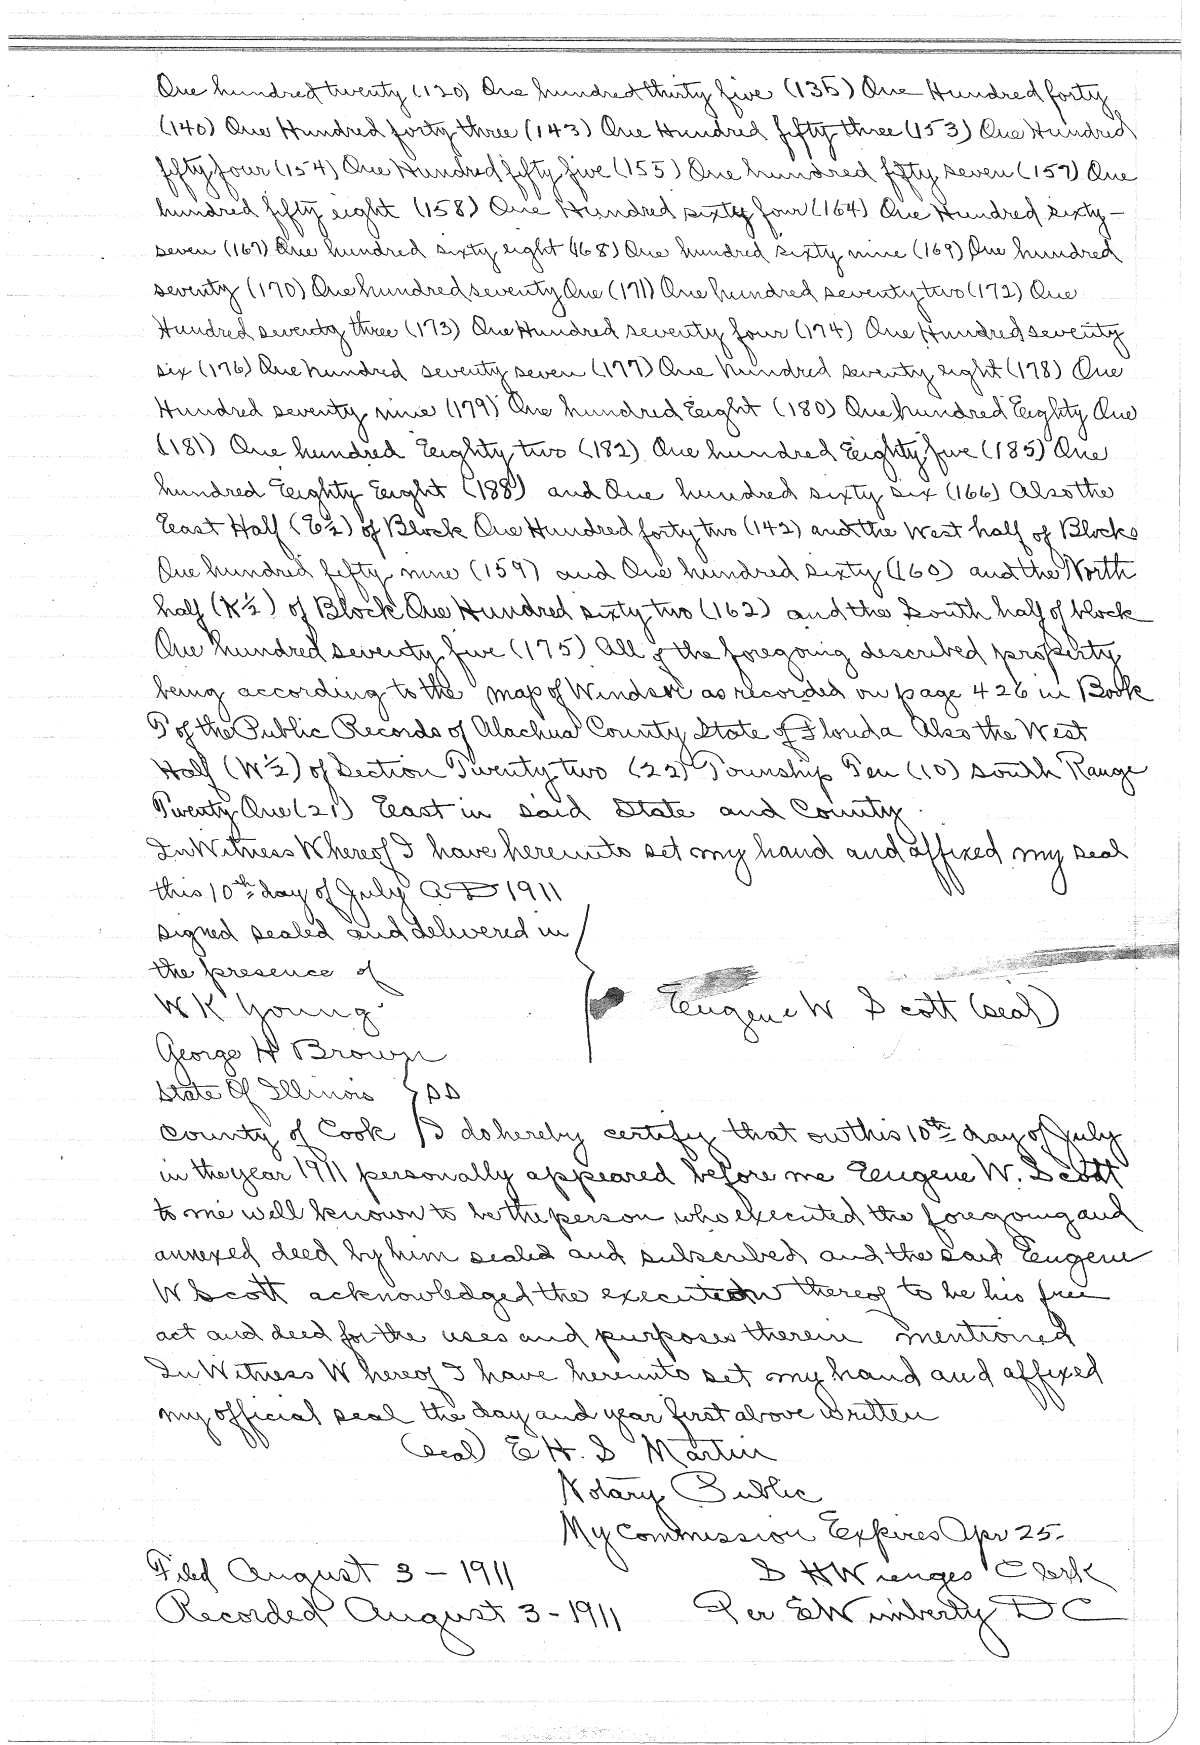 One hundred twenty (120) One hundred thirty five (135) One Hundred forty
(140) One Hundred forty three (143) One Hundred fifty three (153) One Hundred
fifty four (154) One Hundred fifty five (155) One hundred fifty seven (157) One
hundred fifty eight (158) One Hundred sixty four (164) One Hundred sixty-
seven (167) One hundred sixty eight (168) One hundred sixty nine (169) One hundred
seventy (170) One hundred seventy One (171) One hundred seventy two (172) One
Hundred seventy three (173) One Hundred seventy four (174) One Hundred seventy
six (176) One hundred seventy seven (177) One hundred seventy eight (178) One
Hundred seventy nine (179) One hundred Eight (180) One hundred Eighty One
(181) One hundred Eighty two (182) One hundred Eighty five (185) One
hundred Eighty Eight (188) and One hundred sixty six (166) Also the
East Half (E½) of Block One Hundred forty two (142) and the West half of Blocks
One hundred fifty nine (159) and One hundred sixty (160) and the North
half (N½) of Block One Hundred sixty two (162) and the South half of block
One hundred seventy five (175) All of the foregoing described property
being according to the map of Windsor as recorded on page 426 in Book
T of the Public Records of Alachua County State of Florida Also the West
Half (W½) of Section Twenty two (22) Township Ten (10) South Range
Twenty One (21) East in said State and County
In Witness Whereof I have hereunto set my hand and affixed my seal
this 10th day of July A D 1911
signed sealed and delivered in
the presence of
W K Young
Eugene W Scott (seal)
George H Brown
State Of Illinois } SS
County of Cook I do hereby certify that on this 10th day of July
in the year 1911 personally appeared before me Eugene W. Scott
to me well known to be the person who executed the foregoing and
annexed deed by him sealed and subscribed and the said Eugene
W Scott acknowledged the execution thereof to be his free
act and deed for the uses and purposes therein mentioned
In Witness Whereof I have hereunto set my hand and affixed
my official seal the day and year first above written
(seal) E H. S Martin
Notary Public
My Commission Expires Apr 25-
Filed August 3 - 1911 S H Wienges Clerk
Recorded August 3 - 1911 Per E Wimberly D C